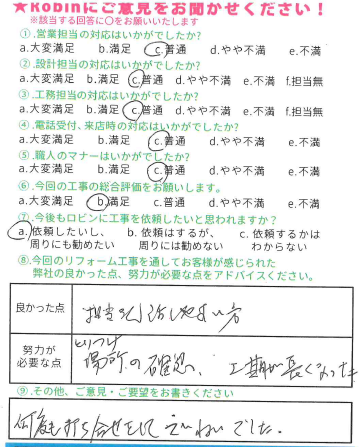 ★Robinにご意見をお聞かせください！
※該当する回答に〇をお願いいたします
①.営業担当の対応はいかがでしたか?
a.大変満足 b.満足 c.普通 d.やや不満 e.不満
②.設計担当の対応はいかがでしたか?
a.大変満足 b.満足 c.普通 d.やや不満 e.不満 f.担当無
③.工務担当の対応はいかがでしたか?
a.大変満足 b.満足 c.普通 d.やや不満 e.不満
④.電話受付、来店時の対応はいかがでしたか?
a.大変満足 b.満足 c.普通 d.やや不満 e.不満
⑤.職人のマナーはいかがでしたか?
a.大変満足 b.満足 c.普通 d.やや不満 e.不満
⑥.今回の工事の総合評価をお願いします。
a.大変満足 b.満足 c.普通 d.やや不満 e.不満
⑦.今後もロビンに工事を依頼したいと思われますか?
a.依頼したいし、 b.依頼はするが、 c.依頼するかは
周りにも勧めたい 周りには勧めない わからない
⑧.今回のリフォーム工事を通してお客様が感じられた
弊社の良かった点、努力が必要な点をアドバイスください。
良かった点
担当の人 話しやすい方
努力が
必要な点
とりつけ
場所の確認、 工期が長くなった
⑨.その他、ご意見・ご要望をお書きください
何度も打ち合せをして でした。